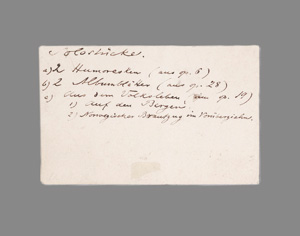 Solostücke.
a) 2 Humoresken (aus op. 6)
b) 2 Albumblätter (aus op. 28)
c) Aus dem Volksleben (aus op. 19)
1) Auf den Bergen
2) Norwegischer Brautzug im Vorüberziehen.